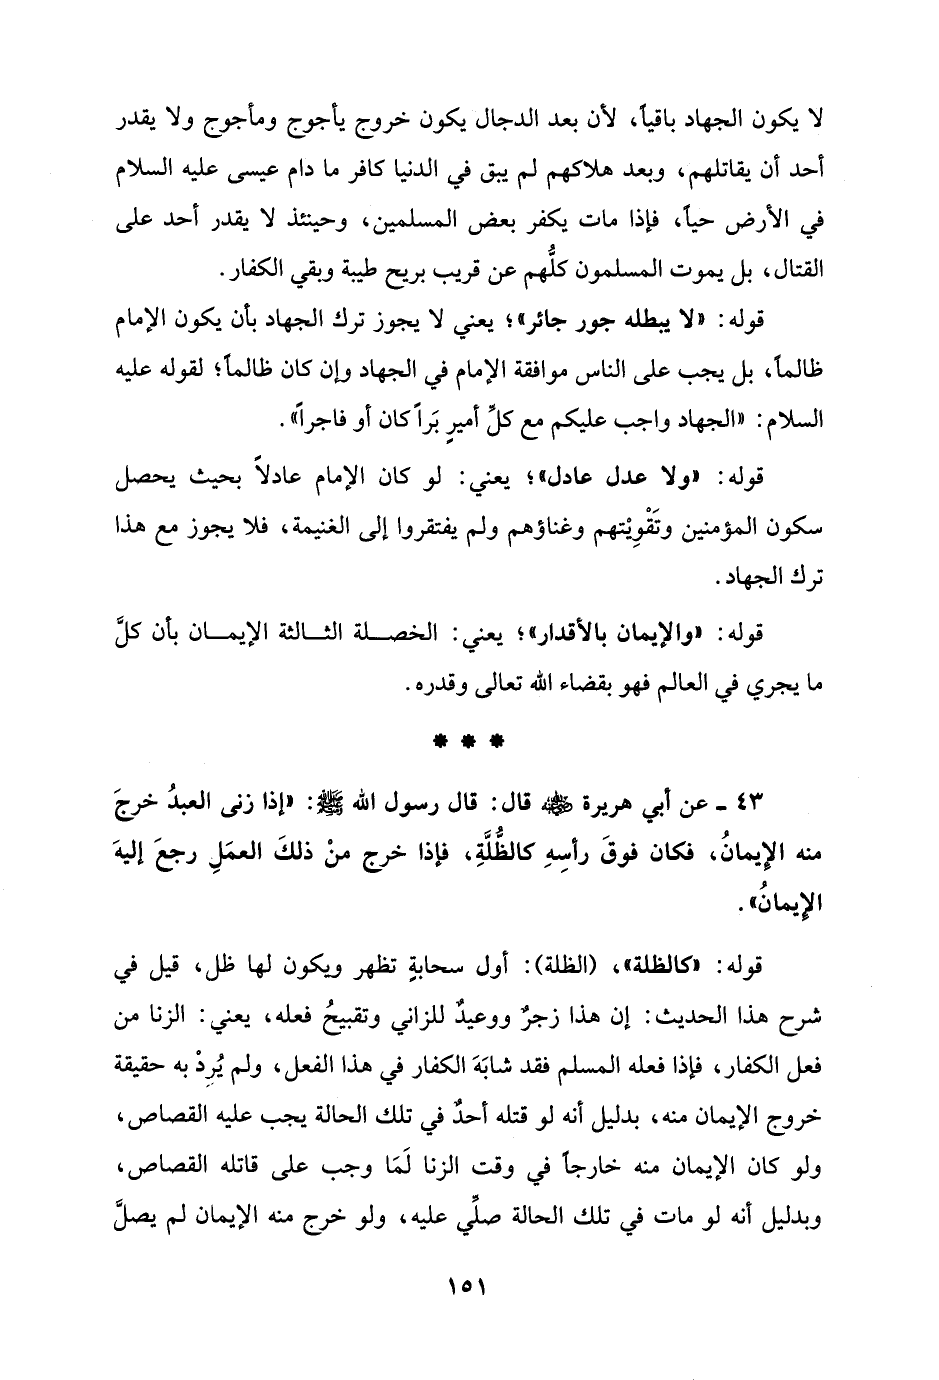 لا يكون الجهاد باقياً، لأن بعد الدجال يكون خروج يأجوج ومأجوج ولا يقدر
أحد أن يقاتلهم، وبعد هلاكهم لم يبق في الدنيا كافر ما دام عيسى عليه السلام
في الأرض حياً، فإذا مات يكفر بعض المسلمين، وحينئذ لا يقدر أحد على
القتال، بل يموت المسلمون كلُّهم عن قريب بريح طيبة وبقي الكفار.
قوله: «لا يبطله جور جائر»؛ يعني لا يجوز ترك الجهاد بأن يكون الإمام
ظالماً، بل يجب على الناس موافقة الإمام في الجهاد وإن كان ظالماً؛ لقوله عليه
السلام: «الجهاد واجب عليكم مع كلِّ أميرٍ بَراً كان أو فاجراً».
قوله: «ولا عدل عادل»؛ يعني: لو كان الإمام عادلاً بحيث يحصل
سكون المؤمنين وتَقْوِيْتهم وغناؤهم ولم يفتقروا إلى الغنيمة، فلا يجوز مع هذا
ترك الجهاد.
قوله: «والإيمان بالأقدار»؛ يعني: الخصلة الثالثة الإيمان بأن كلَّ
ما يجري في العالم فهو بقضاء الله تعالى وقدره.
* * *
٤٣ ـ عن أبي هريرة ﵁ قال: قال رسول الله ﷺ: «إذا زنى العبدُ خرجَ
منه الإيمانُ، فكان فوقَ رأسِهِ كالظُّلَّةِ، فإذا خرج منْ ذلكَ العمَلِ رجعَ إليهَ
الإيمانُ».
قوله: «كالظلة»، (الظلة): أول سحابةٍ تظهر ويكون لها ظل، قيل في
شرح هذا الحديث: إن هذا زجرٌ ووعيدٌ للزاني وتقبيحُ فعله، يعني: الزنا من
فعل الكفار، فإذا فعله المسلم فقد شابَهَ الكفار في هذا الفعل، ولم يُرِدْ به حقيقة
خروج الإيمان منه، بدليل أنه لو قتله أحدٌ في تلك الحالة يجب عليه القصاص،
ولو كان الإيمان منه خارجاً في وقت الزنا لَمَا وجب على قاتله القصاص،
وبدليل أنه لو مات في تلك الحالة صلِّي عليه، ولو خرج منه الإيمان لم يصلَّ
١٥١